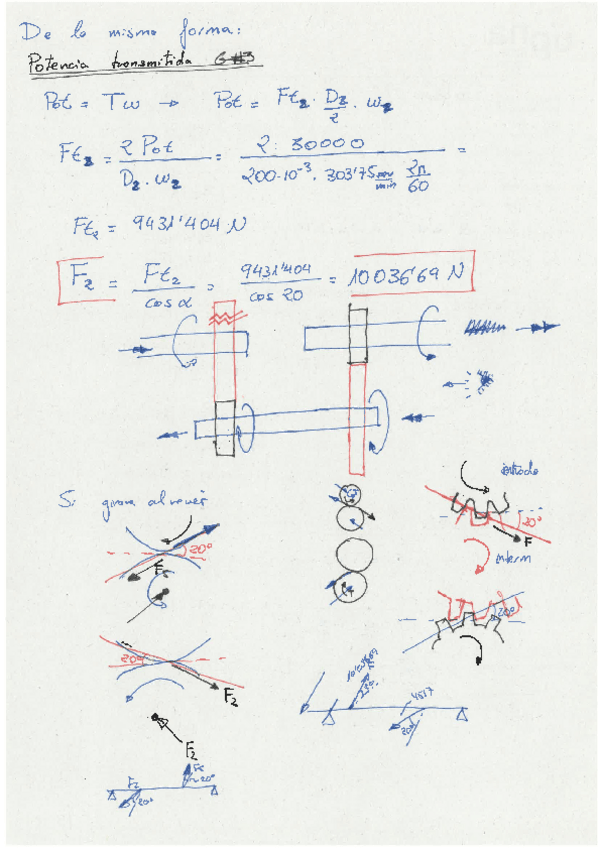 De la misma forma:
Potencia transmitida G#3
Pot = Tω → Pot = Ft₂ · D₂/2 · ω₂
Ft₂ = 2 Pot / D₂ · ω₂ = 2 · 30000 / 200·10⁻³ · 303'75 rev/min 2π/60 =
Ft₂ = 9431'404 N
F₂ = Ft₂ / cos α = 9431'404 / cos 20 = 10036'69 N
Si girara al revés
20°
F
20°
F₂
F₂
F₂
20°
20°
entrada
20°
F
interm
20°
4517
20°